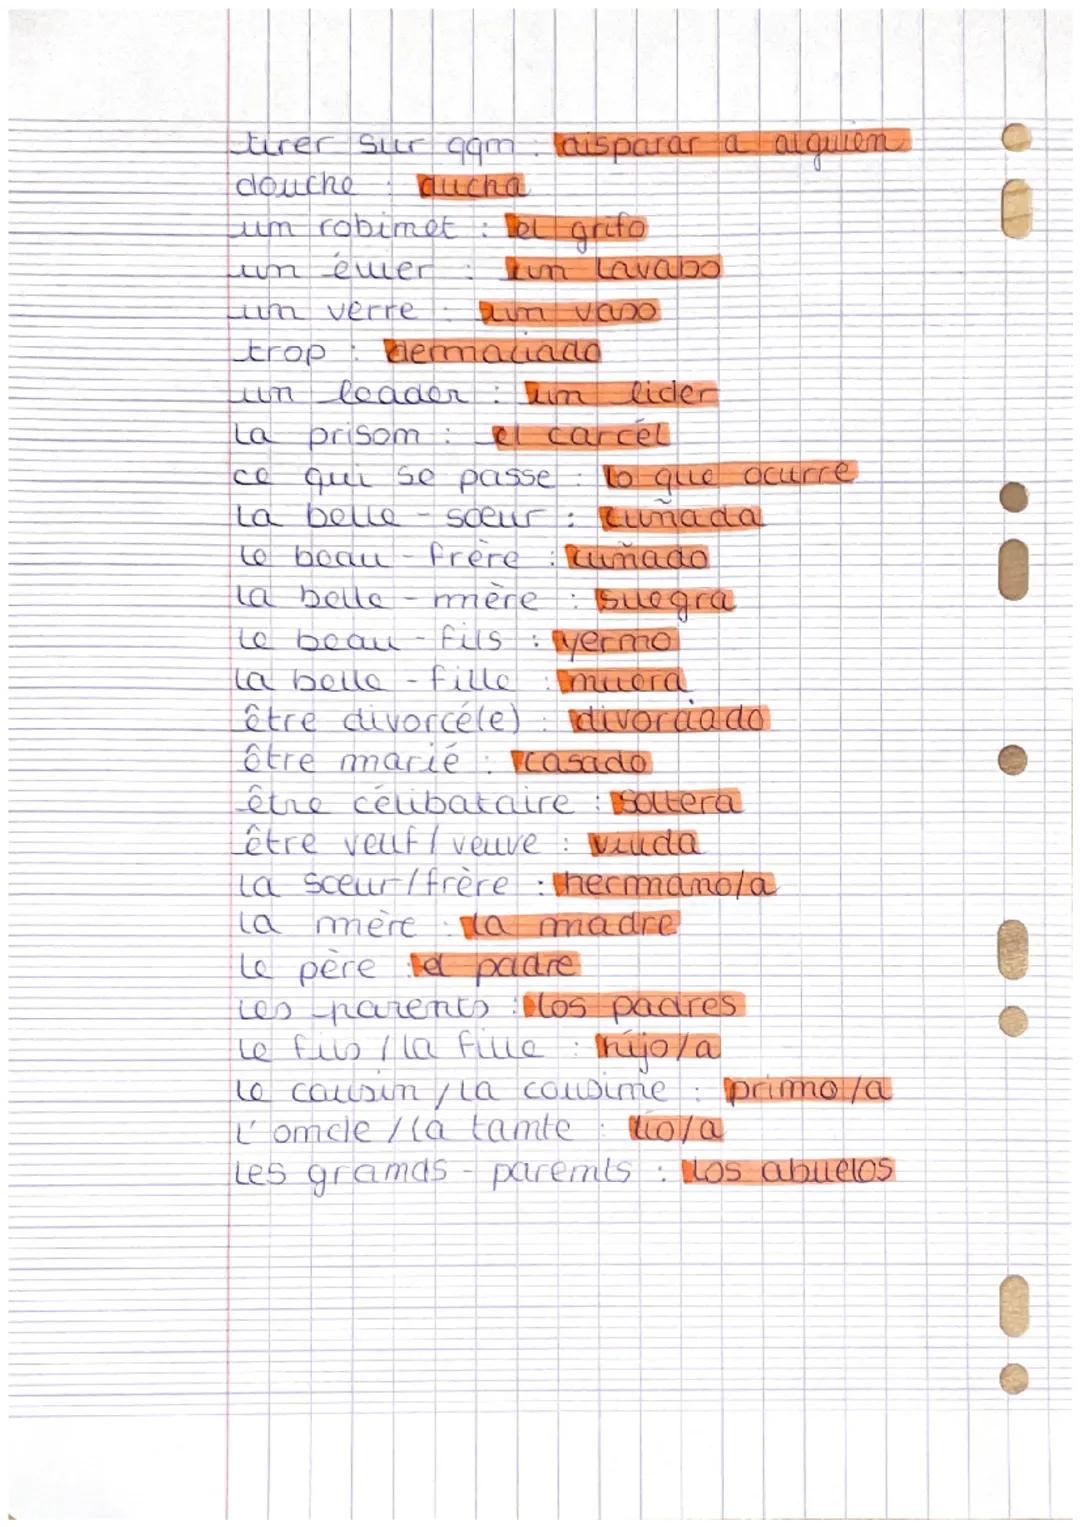 tirer sur qqn : disparar a alguien
douche : ducha
un robinet : el grifo
un évier : un lavabo
un verre : un vaso
trop : demaciado
un leader : un lider
la prison : el carcél
ce qui se passe : lo que ocurre
la belle-soeur : cuñada
le beau-frère : cuñado
la belle-mère : suegra
le beau-fils : yerno
la belle-fille : nuera
être divorcé(e) : divorciado
être marié : casado
être célibataire : soltera
être veuf/veuve : viuda
la soeur/frère : hermano/a
la mère : la madre
le père : el padre
les parents : los padres
le fils/la fille : hijo/a
le cousin/la cousine : primo/a
l'oncle/la tante : tio/a
les grands-parents : los abuelos